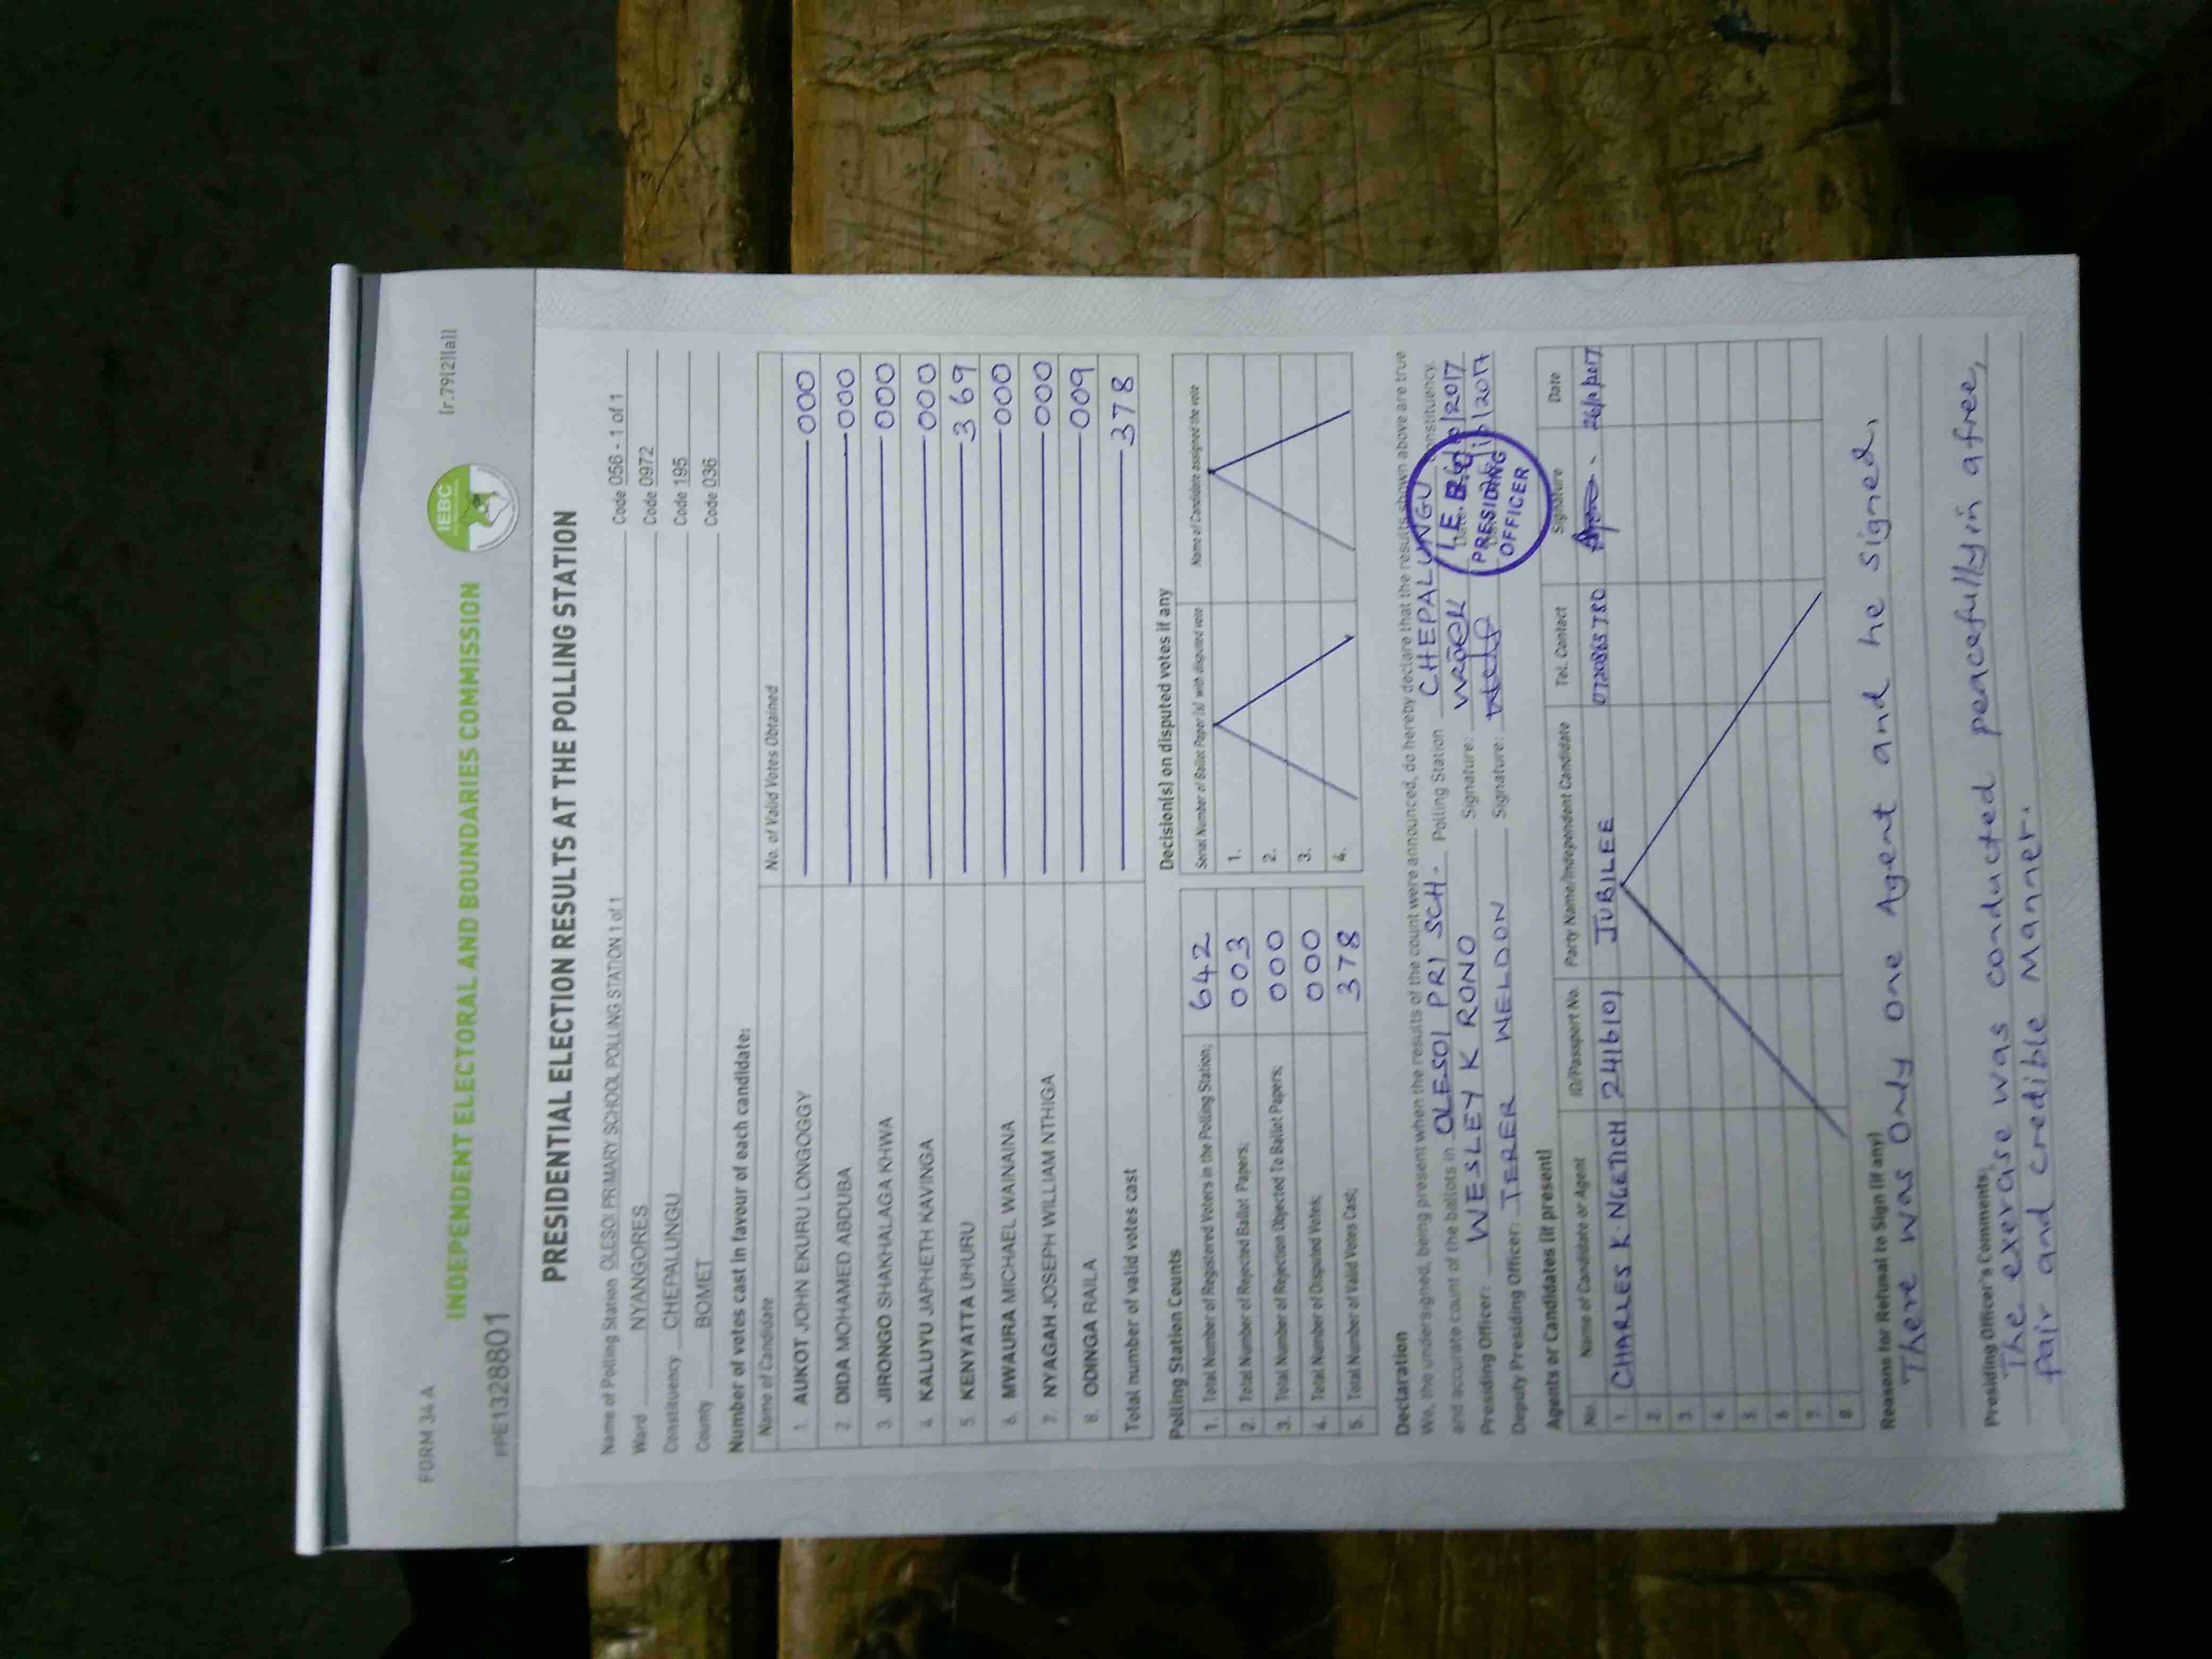 FORM 34 A
[r.79(2)(a)]
IEBC
INDEPENDENT ELECTORAL AND BOUNDARIES COMMISSION
PRE1328801
PRESIDENTIAL ELECTION RESULTS AT THE POLLING STATION
Name of Polling Station OLESOI PRIMARY SCHOOL POLLING STATION 1 of 1 Code 056 - 1 of 1
Ward NYANGORES Code 0972
Constituency CHEPALUNGU Code 195
County BOMET Code 036
Number of votes cast in favour of each candidate:
Name of Candidate No. of Valid Votes Obtained
1. AUKOT JOHN EKURU LONGOGGY 000
2. DIDA MOHAMED ABDUBA 000
3. JIRONGO SHAKHALAGA KHWA 000
4. KALUYU JAPHETH KAVINGA 000
5. KENYATTA UHURU 369
6. MWAURA MICHAEL WAINAINA 000
7. NYAGAH JOSEPH WILLIAM NTHIGA 000
8. ODINGA RAILA 009
Total number of valid votes cast 378
Polling Station Counts
1. Total Number of Registered Voters in the Polling Station; 642
2. Total Number of Rejected Ballot Papers; 003
3. Total Number of Rejection Objected To Ballot Papers; 000
4. Total Number of Disputed Votes; 000
5. Total Number of Valid Votes Cast; 378
Decision(s) on disputed votes if any
Serial Number of Ballot Paper (s) with disputed vote Name of Candidate assigned the vote
1.
2.
3.
4.
Declaration
We, the undersigned, being present when the results of the count were announced, do hereby declare that the results shown above are true
and accurate count of the ballots in OLESOI PRI SCH- Polling Station CHEPALUNGU Constituency.
Presiding Officer: WESLEY K RONO Signature: Date: 2017
Deputy Presiding Officer: TERER WELDON Signature: 2017
PRESIDING
OFFICER
Agents or Candidates (if present)
No. Name of Candidate or Agent ID/Passport No. Party Name/Independent Candidate Tel. Contact Signature Date
1. CHARLES K. NGETICH 24116101 JUBILEE 0720863780
2.
3.
4.
5.
6.
7.
8.
Reasons for Refusal to Sign (if any)
There was only one Agent and he signed.
Presiding Officer's Comments;
The exercise was conducted peacefully in a free,
fair and credible manner.